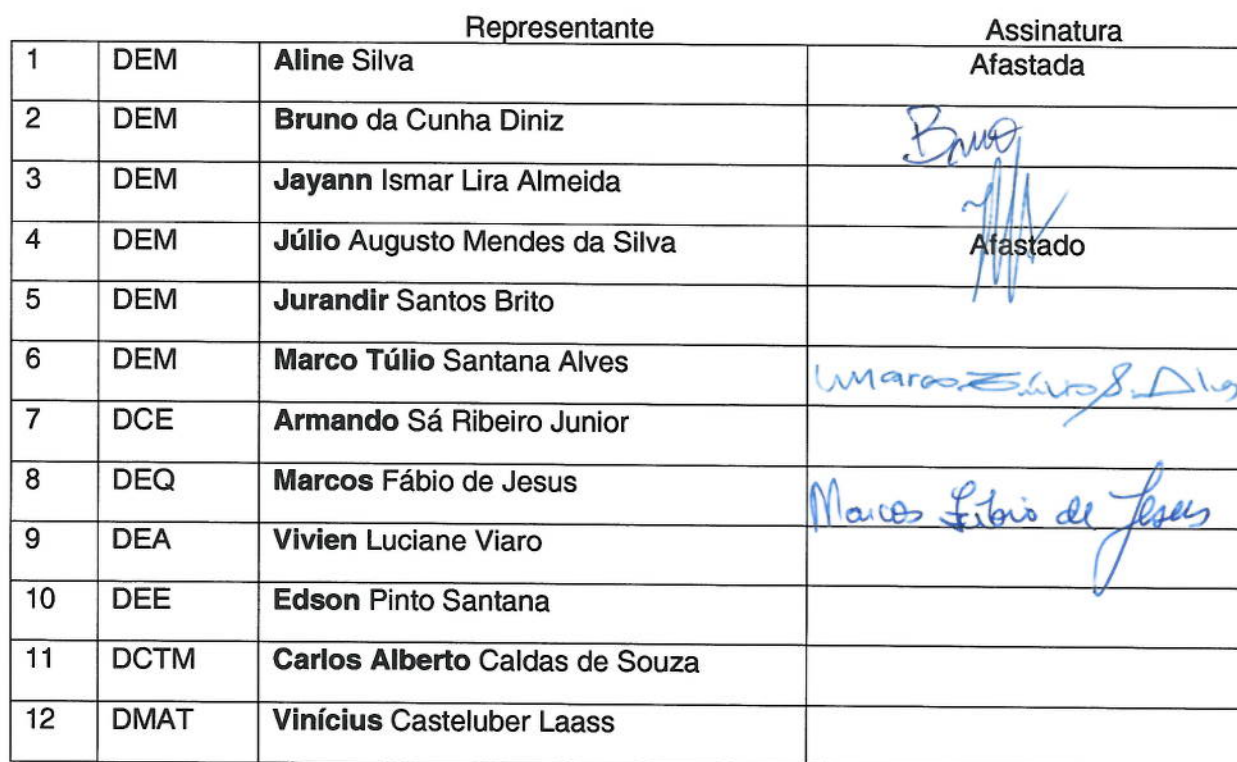 Representante Assinatura
1 DEM Aline Silva Afastada
2 DEM Bruno da Cunha Diniz Bruno
3 DEM Jayann Ismar Lira Almeida
4 DEM Júlio Augusto Mendes da Silva Afastado
5 DEM Jurandir Santos Brito
6 DEM Marco Túlio Santana Alves Marco Túlio S. Alves
7 DCE Armando Sá Ribeiro Junior
8 DEQ Marcos Fábio de Jesus Marcos Fábio de Jesus
9 DEA Vivien Luciane Viaro
10 DEE Edson Pinto Santana
11 DCTM Carlos Alberto Caldas de Souza
12 DMAT Vinícius Casteluber Laass